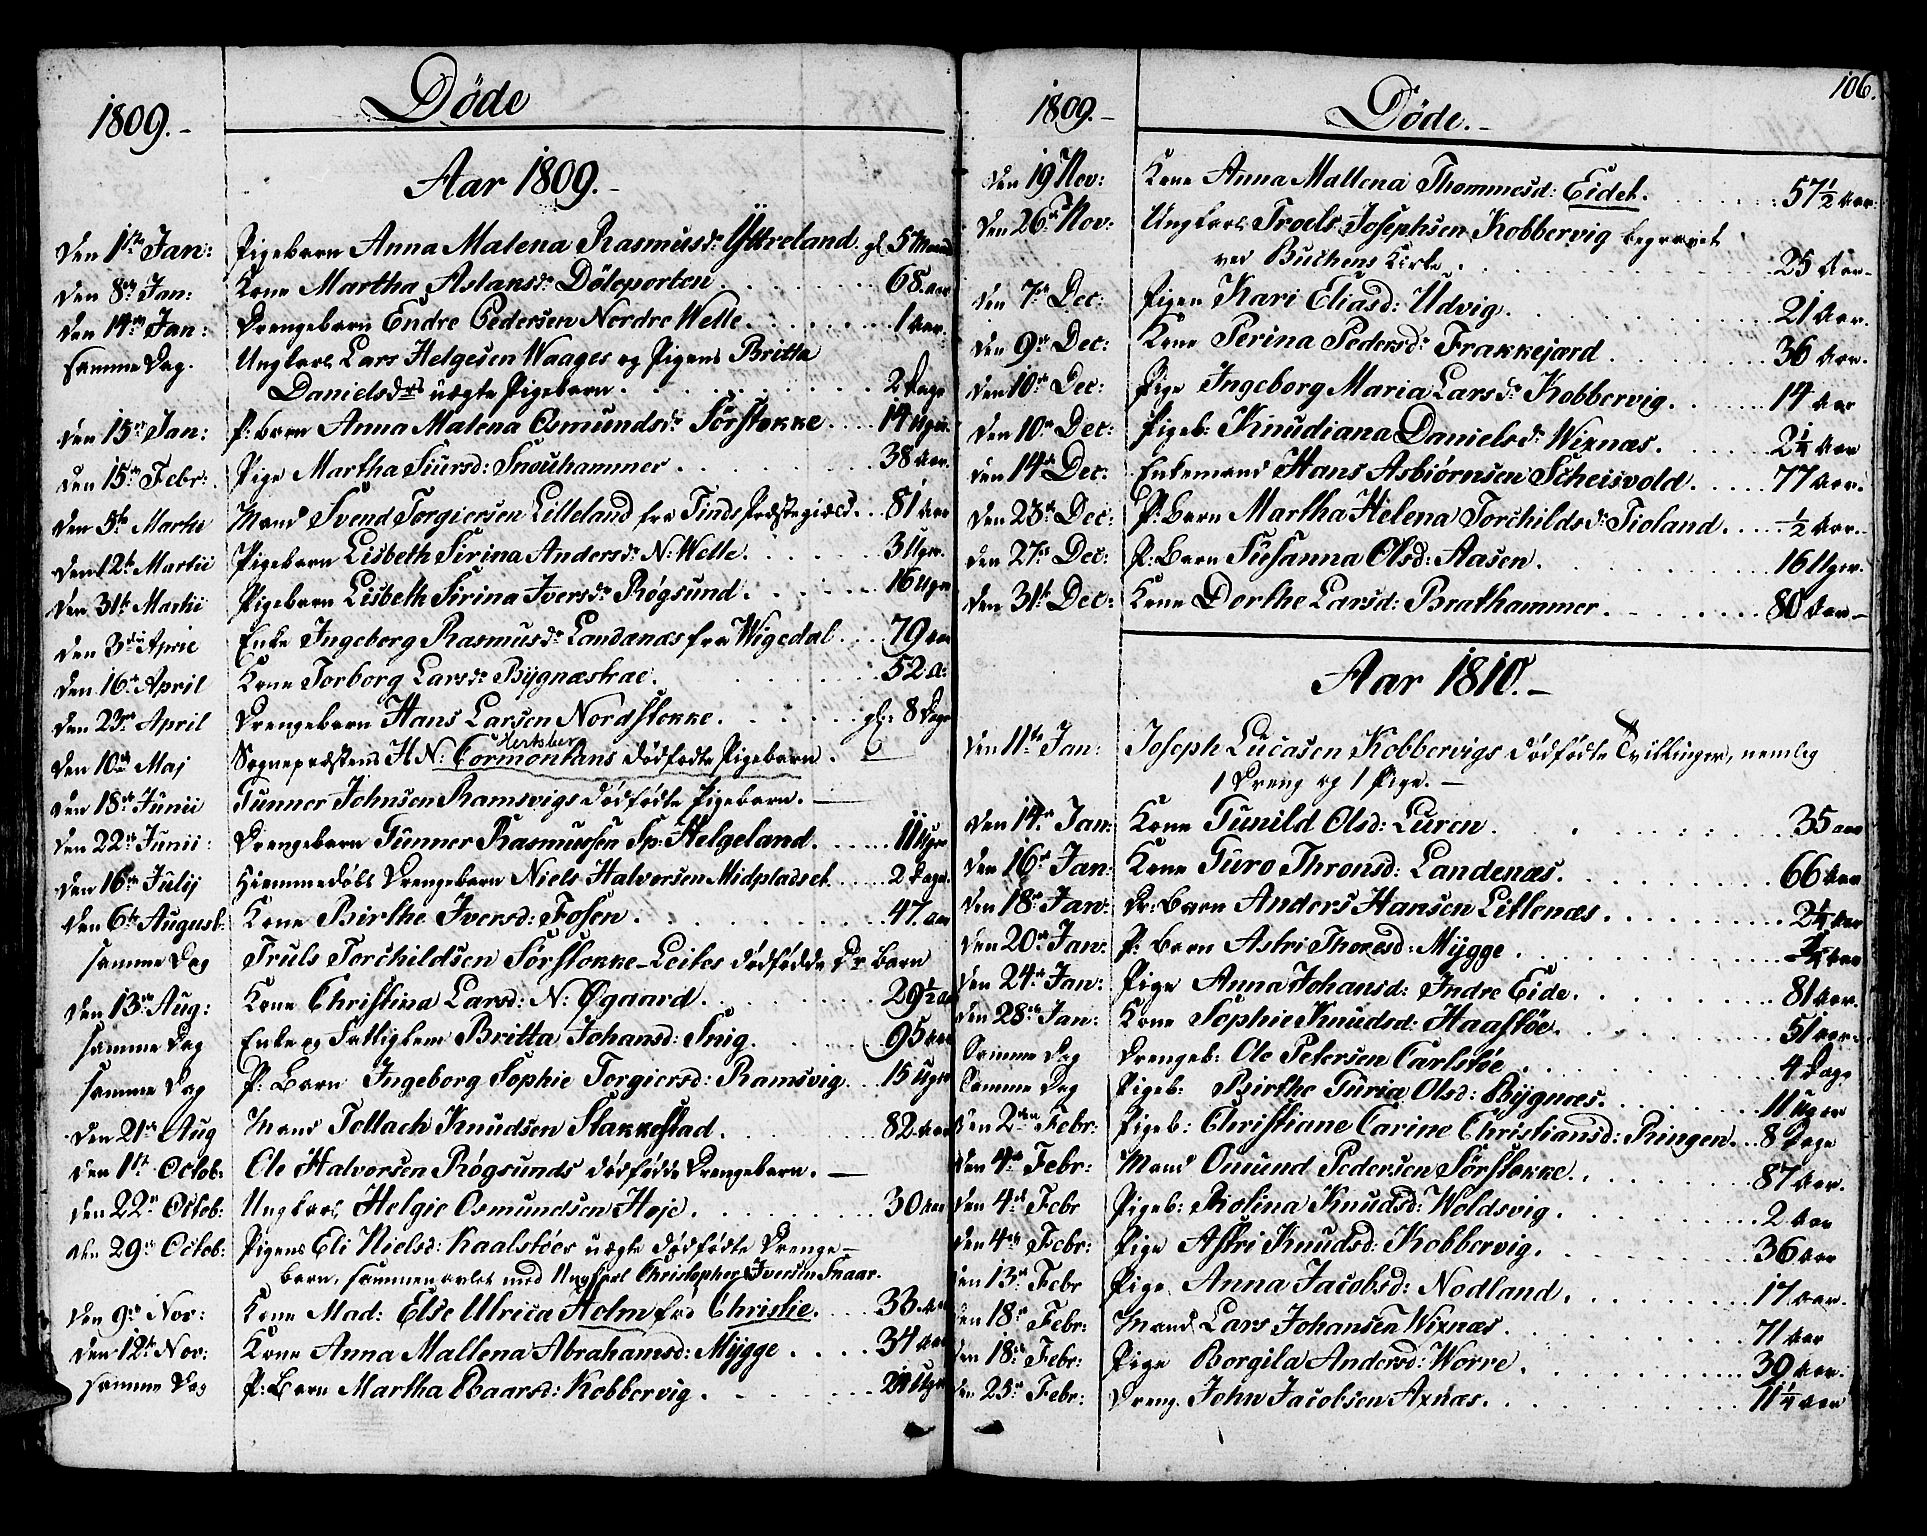 1809.-
Døde
Aar 1809.-
Den 1ste Jan: Pigebarn Anna Malena Rasmusdr Yttreland. gl. 5 Maaned
Den 8de Jan: Kone Martha Aslansdr Döleporten. 68. aar
Den 14de Jan: Drengebarn Endre Pedersen Nordre Welle. 1 Aar.
samme Dag. Ungkarl Lars Helgesen Waages og Pigens Britta
Danielsdrs uægte Pigebarn. 2 Dage
Den 15de Jan: P: barn Anna Malena Osmundsdr Sörstokke. 14 Uger.
Den 15de Febr: Pige Martha Siursd: Snouhammer. 38 Aar.
Den 5te Martii Mand Svend Torgiersen Lilleland fra Finds Præstegield. 81 Aar
Den 12te Martii Pigebarn Lisbeth Sirina Andersdr N: Welle. 3 Uger.
Den 31te Martii Pigebarn Lisbeth Sirina Iversdr Rögsund. 16 Uger
Den 3die April Enke Ingeborg Rasmusdr Landanæs fra Wigedal. 79 Aar
Den 16de April Kone Torborg Larsdr Bygnæstrae. 52. A:
Den 23de April Drengebarn Hans Larsen Nordstokke. gl: 8 Dage
Hertsber
Den 10de Maj Sognepræstens H N: Cormontans dödfødte Pigebarn.
Den 18de Junii Gunner Johnsen Ramsvigs dödfödte Pigebarn.
Den 22de Junii: Drengebarn Gunner Rasmussen Sp: Helgeland. 11 Uger
Den 16de Julij Hiemmedöbt Drengebarn Niels Halvorsen Midpladset. 2 Dage.
Den 6te August: Kone Birthe Iversd: Fosen. 47. aar
samme Dag Truls Torchildsen Sörstokke-Leites dödfödde Dr barn
Den 13de Aug: Kone Christina Larsd: N: Øgaard. 29½ A
samme Dag Enke og Fattiglem Britta Johansd: Snig. 95 Aar
samme Dag P: Barn Ingeborg Sophie Torgiersd: Ramsvig. 15 Uger
Den 21de Aug Mand Tollach Knudsen Stakkestad. 82 Aar
Den 1ste Octob: Ole Halvorsen Rögsunds dödfödde Drengebarn.
Den 22de Octob: Ungkarl Helgie Osmundsen Hoje. 30 Aar
Den 29de Octob: Pigens Eli Nielsd: Kaalstöes uægte dödfödte Drenge-
barn, sammenavlet med Ungkarl Christopher Iversen Snaar.
Den 9de Nov: Kone Mad: Else Ulrica Holm fød Christie. 33 Aar
Den 12te Nov: Kone Anna Mallena Abrahamsd: Mygge. 34 Aar
samme Dag P: Barn Martha Baarsd: Kobbervig. Uger
106.
1809.-
Døde.-
Den 19de Nov: Kone Anna Mallena Thommesd: Eidet. 57½ Aar.
Den 26de Nov: Ungkarl Troels Josephsen Kobbervig begravet
ved Buchens Kirke. 25 Aar-
Den 7de Dec: Pigen Kari Eliasd: Udvig. 21 Aar.
Den 9de Dec: Kone Perina Pedersdr Frakkejærd. 36 Aar.
Den 10de Dec: Pige Ingeborg Maria Larsdr Kobbervig. 14 Aar
Den 10de Dec: Pigeb: Knudiana Danielsdr Wixnæs. 2¼ Aar
Den 14de Dec: Enkemand Hans Asbiørnsen Scheisvold. 77 Aar.
Den 23de Dec: P: Barn Martha Helena Torchildsdr Tioland. ½ Aar.
Den 27de Dec: P: Barn Susanna Olsd: Aasen. 16 Uger.
Den 31te Dec: Kone Dorthe Larsd: Brathammer. 80 Aar-
Aar 1810.-
Den 11te Jan: Joseph Lucasen Kobbervigs dödfödte Tvillinger, nemlig
1 Dreng og 1 Pige.-
Den 14de Jan: Kone Gunild Olsd: Luren. 35 aar
Den 16de Jan: Kone Guro Thronsd: Landenæs. 66 Aar
Den 18de Jan: Dr: Barn Anders Hansen Litlenæs. 2¼ Aar
Den 20de Jan: P: Barn Astri Thoresd: Mygge. ¾ Aar
Den 24de Jan: Pige Anna Johansd: Indre Eide. 81 Aar.
Den 28de Jan: Kone Sophie Knudsd: Haastöe. 51 Aar.
Samme Dag Drengeb: Ole Petersen Carlstöe. 4 Dage
Samme Dag Pigeb: Birthe Guria Olsd: Bygnæs. 11 Uger
Den 2den Febr: Pigeb: Christiane Carine Christiansd: Ringen. 8 Dage
Den 4de Febr: Mand Omund Pedersen Sörstokke. 87 Aar.
Den 4de Febr Pigeb: Riolina Knudsd: Woldsvig. 2 Aar
Den 4de Febr: Pige Astri Knudsd: Kobbervig. 36 Aar
Den 13de Febr Pige Anna Jacobsd: Nodland. 17 Aar.
Den 18de Febr: Mand Lars Johansen Wixnæs. 71 Aar
Den 18de Febr: Pige Borgila Andersd: Worre. 30 Aar.
Den 25de Febr: Dreng John Jacobsen Axnæs. 11¼ Aar